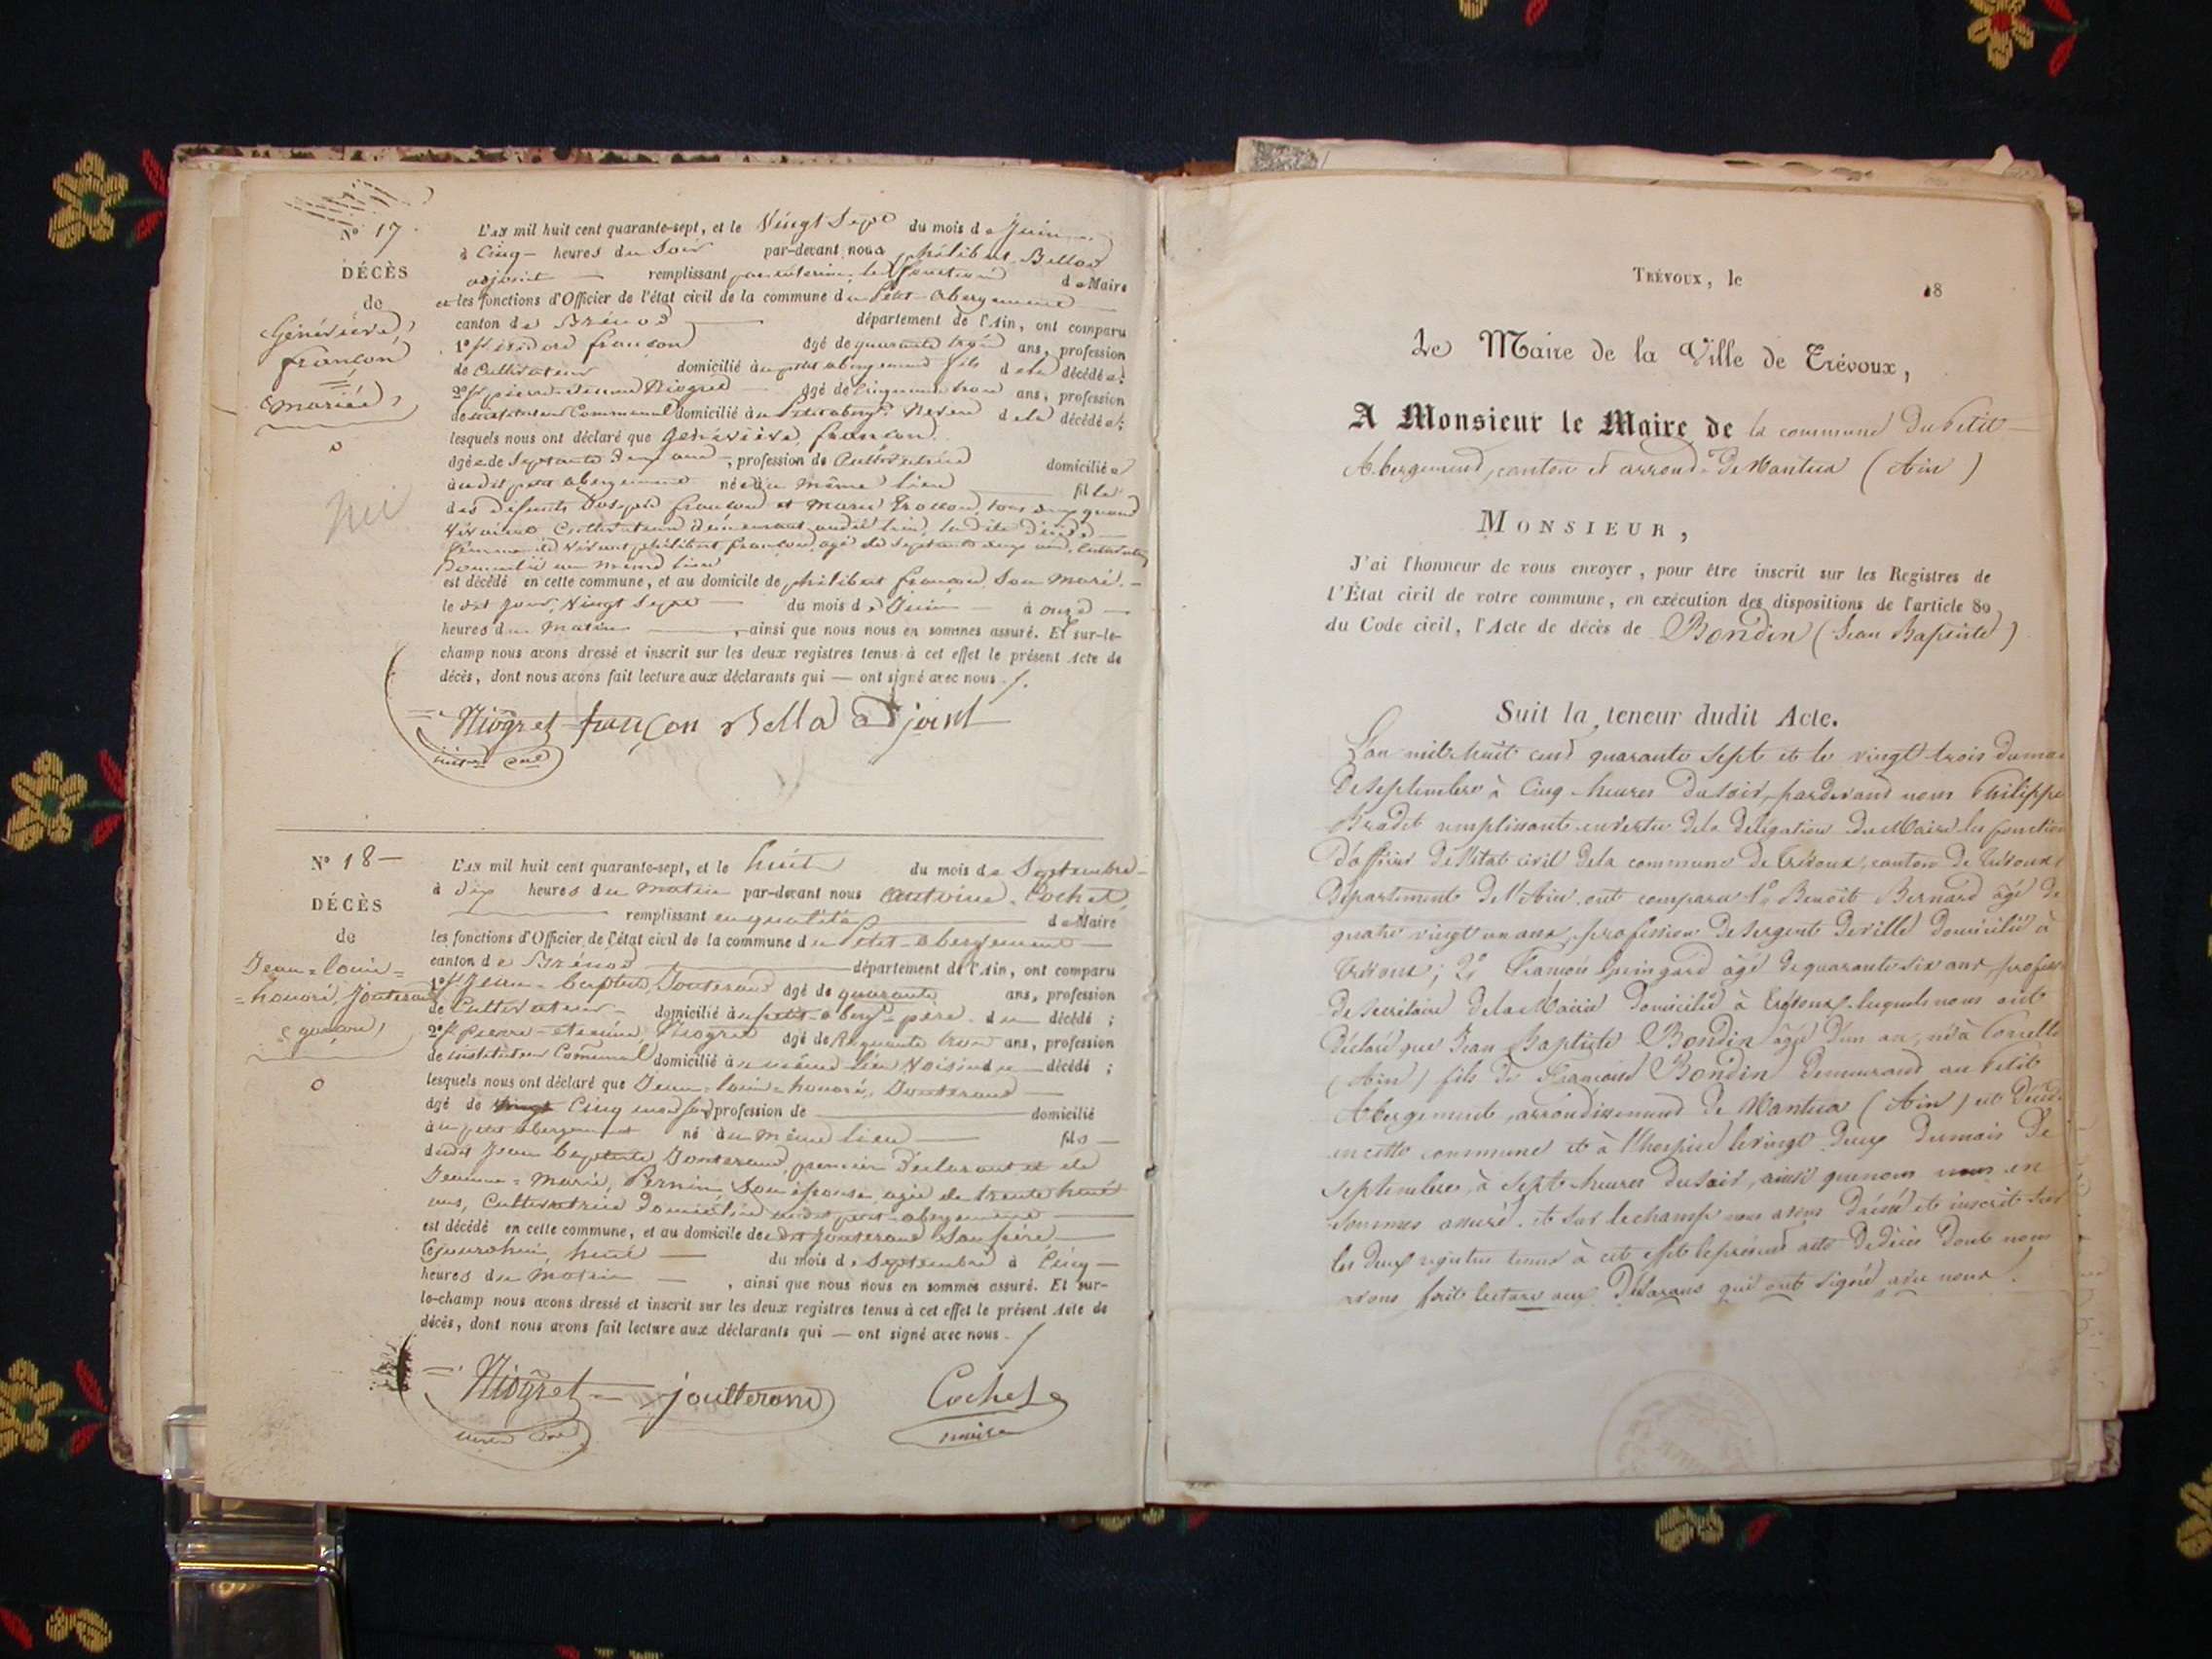 N° 17
DÉCÈS
de
Généviève
françon
mariée
L'AN mil huit cent quarante-sept, et le Vingt Sept du mois de Juin
à Cinq heures du Soir par-devant nous philibert Bellod
adjoint remplissant par interim les fonctions de Maire
et les fonctions d'Officier de l'état civil de la commune du Petit-Abergement
canton de Brénod département de l'Ain, ont comparu
1° françon agé de quarante ans, profession
de Cultivateur domicilié au petit abergement fils de la décédée;
2° pierre-étienne Niogret agé de Cinquante trois ans, profession
de instituteur Communal domicilié au Petit aberg.t Neveu de la décédée;
lesquels nous ont déclaré que Généviève françon
agée de Septante deux ans, profession de Cultivatrice domiciliée
audit petit abergement née au même lieu fille
des défunts Joseph françon et Marie tous deux quand
vivaient Cultivateurs demeurant audit lieu, ladite décédée
femme du vivant philibert françon, agé de Septante deux ans, Cultivateur
Domicilié au même lieu
est décédé en cette commune, et au domicile de philibert françon Son Mari
le dit jour, Vingt Sept du mois de Juin à onze
heures du Matin, ainsi que nous nous en sommes assuré. Et sur-le-
champ nous avons dressé et inscrit sur les deux registres tenus à cet effet le présent Acte de
décès, dont nous avons fait lecture aux déclarants qui — ont signé avec nous.
Niogret françon Bellod adjoint
N° 18
DÉCÈS
de
Jean=louis=
=honoré, Jouterand
garçon
L'AN mil huit cent quarante-sept, et le huit du mois de Septembre
à dix heures du matin par-devant nous Antoine Cochet
remplissant en qualité de Maire
les fonctions d'Officier de l'état civil de la commune du Petit-abergement
canton de Brénod département de l'Ain, ont comparu
1° Jean-baptiste Jouterand agé de quarante ans, profession
de Cultivateur domicilié au petit-aberg.t père du décédé;
2° pierre-étienne Niogret agé de Cinquante trois ans, profession
de instituteur Communal domicilié au même lieu Voisin du décédé;
lesquels nous ont déclaré que Jean=louis=honoré, Jouterand
agé de Cinq mois profession de domicilié
au petit abergement né au même lieu fils
dudit Jean baptiste Jouterand, premier déclarant et de
Jeanne=Marie, Pernin Son épouse agée de trente huit
ans, Cultivatrice Domiciliée audit petit-abergement
est décédé en cette commune, et au domicile dudit Jouterand Son père
Cejourdhui huit du mois de Septembre à Cinq
heures du Matin, ainsi que nous nous en sommes assuré. Et sur-
le-champ nous avons dressé et inscrit sur les deux registres tenus à cet effet le présent Acte de
décès, dont nous avons fait lecture aux déclarants qui — ont signé avec nous.
Niogret joutterand Cochet
maire
TRÉVOUX, le 18
Le Maire de la Ville de Trévoux,
A Monsieur le Maire de la commune du Petit
Abergement, canton et arrond. de Nantua (Ain)
MONSIEUR,
J'ai l'honneur de vous envoyer, pour être inscrit sur les Registres de
l'État civil de votre commune, en exécution des dispositions de l'article 80
du Code civil, l'Acte de décès de Bondin (Jean Baptiste)
Suit la teneur dudit Acte.
L'an mil huit cent quarante sept et le vingt trois du mois
de septembre à Cinq heures du soir, pardevant nous Philippe
Bradet remplissant en vertu de la délégation du Maire les fonctions
d'officier de l'état civil de la commune de Trévoux, canton de Trévoux
Département de l'Ain, ont comparu 1° Benoit Bernard âgé de
quatre vingt un ans, profession de sergent de ville domicilié à
Trévoux; 2° François Guingard âgé de quarante six ans, profession
de secrétaire de la Mairie domicilié à Trévoux, lesquels nous ont
Déclaré que Jean Baptiste Bondin âgé d'un an, né à
(Ain) fils de François Bondin demeurant au Petit
Abergement, arrondissement de Nantua (Ain) est décédé
en cette commune et à l'hospice le vingt deux du mois de
septembre, à sept heures du soir, ainsi que nous nous en
sommes assuré. et sur le champ nous avons dressé et inscrit sur
les deux registres tenus à cet effet le présent acte de décès dont nous
avons fait lecture aux Déclarans qui ont signé avec nous.